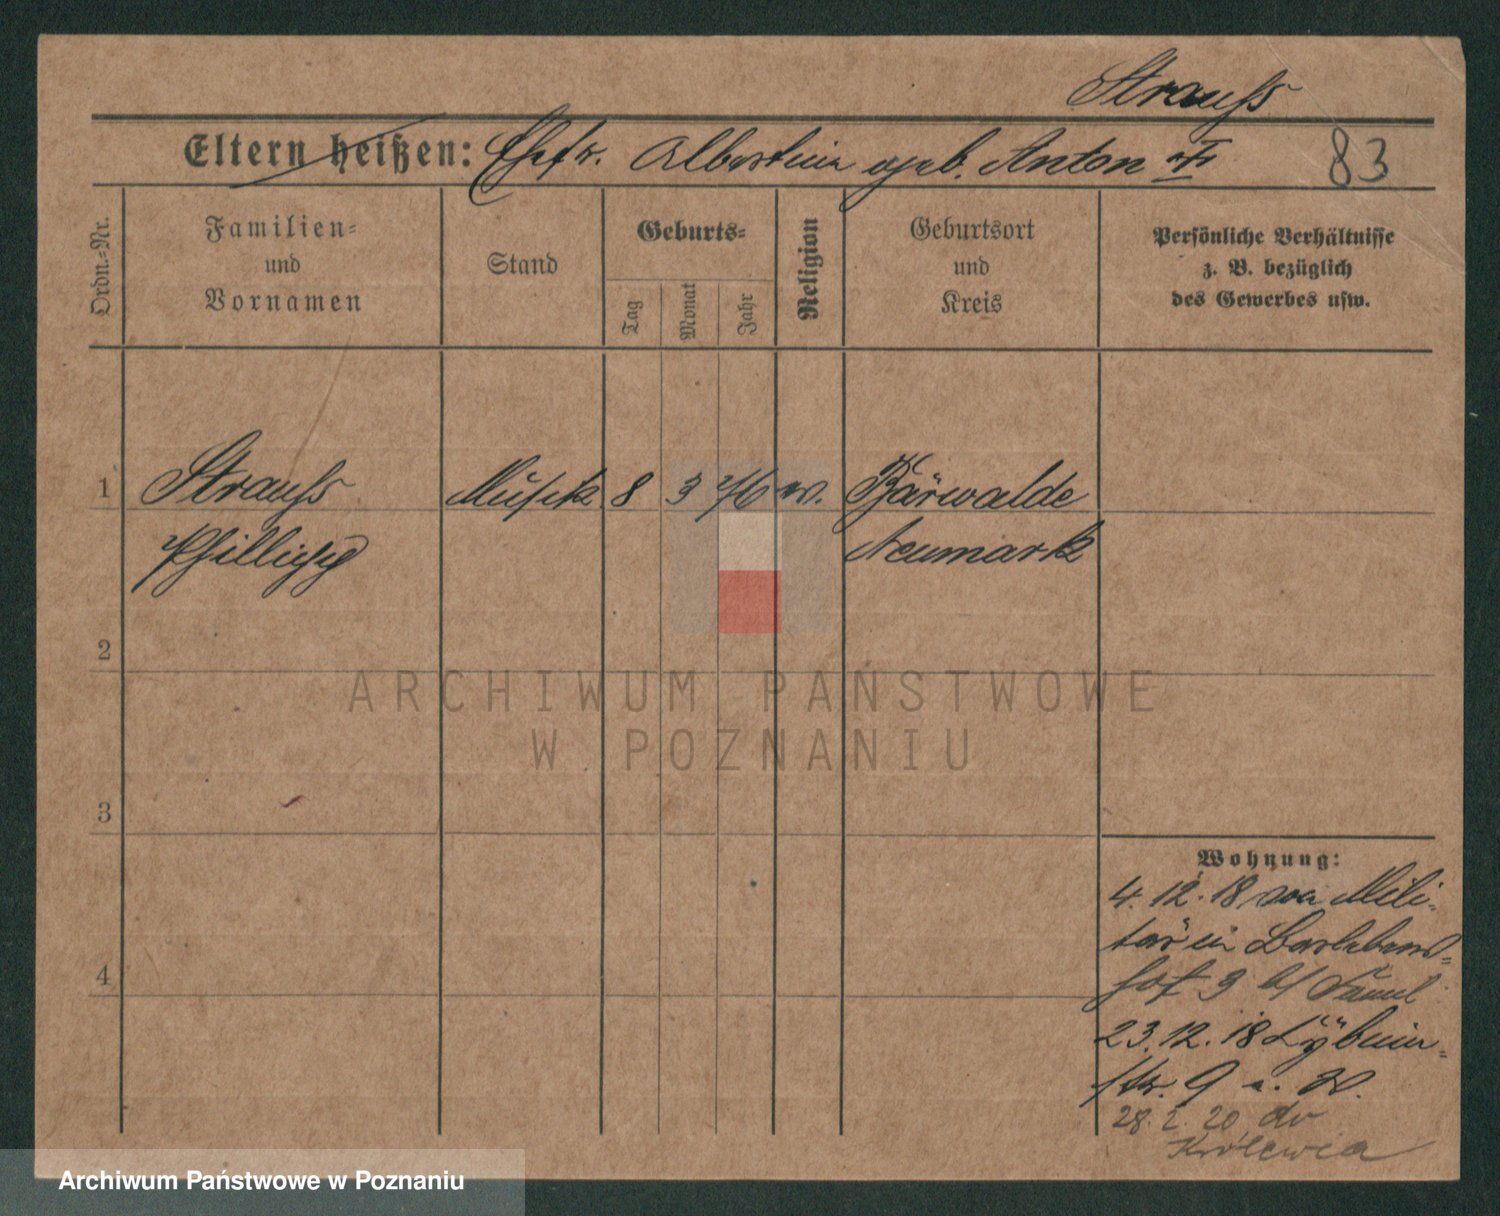 Strauß
Eltern heißen: Ehefr. Albertine geb. Anton
83
Ordn.-Nr.
Familien-
und
Vornamen
Stand
Geburts-
Tag
Monat
Jahr
Religion
Geburtsort
und
Kreis
Persönliche Verhältnisse
z. B. bezüglich
des Gewerbes usw.
1
Strauß
Musik. 8 3 76 Bärwalde
Phillipp
Neumark
2
ARCHIWUM PAŃSTWOWE
W POZNANIU
3
4
Wohnung:
4. 12. 18 Mili-
tär in
hof 3 b/
23. 12. 18
str. 9
28. 2. 20 do
Królewca
Archiwum Państwowe w Poznaniu